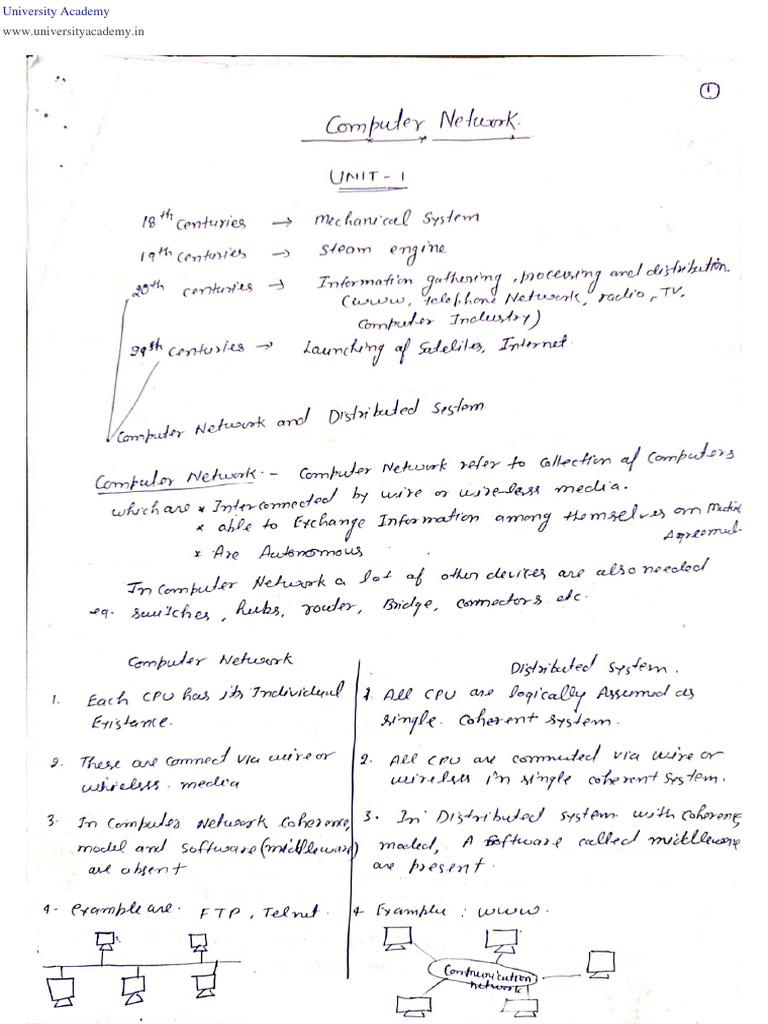 University Academy
www.universityacademy.in
1
Computer Network.
UNIT - 1
18th centuries → Mechanical System
19th centuries → Steam engine
20th centuries → Information gathering, processing and distribution.
(WWW, telephone Network, radio, TV,
Computer Industry)
centuries → Launching of Satelites, Internet.
Computer Network and Distributed System
Computer Network :- Computer Network refer to collection of Computers
which are * Interconnected by wire or wire-less media.
* able to Exchange Information among themselves on
Agreement.
* Are Autonomous
In Computer Network a lot of other devices are also needed
eg. switches, hubs, router, Bridge, connectors etc.
Computer Network
1. Each CPU has its Individual
Existance.
2. These are connect via wire or
wireless media
3. In Computer Network Coherence,
model and software (middleware)
are absent
4- example are. FTP, Telnet.
Distributed System.
1. All CPU are logically Assumed as
single coherent system.
2. All CPU are connected via wire or
wireless in single coherent system.
3. In Distributed system with coherence
model, A software called middleware
are present.
4 Example : WWW.
Communication
network